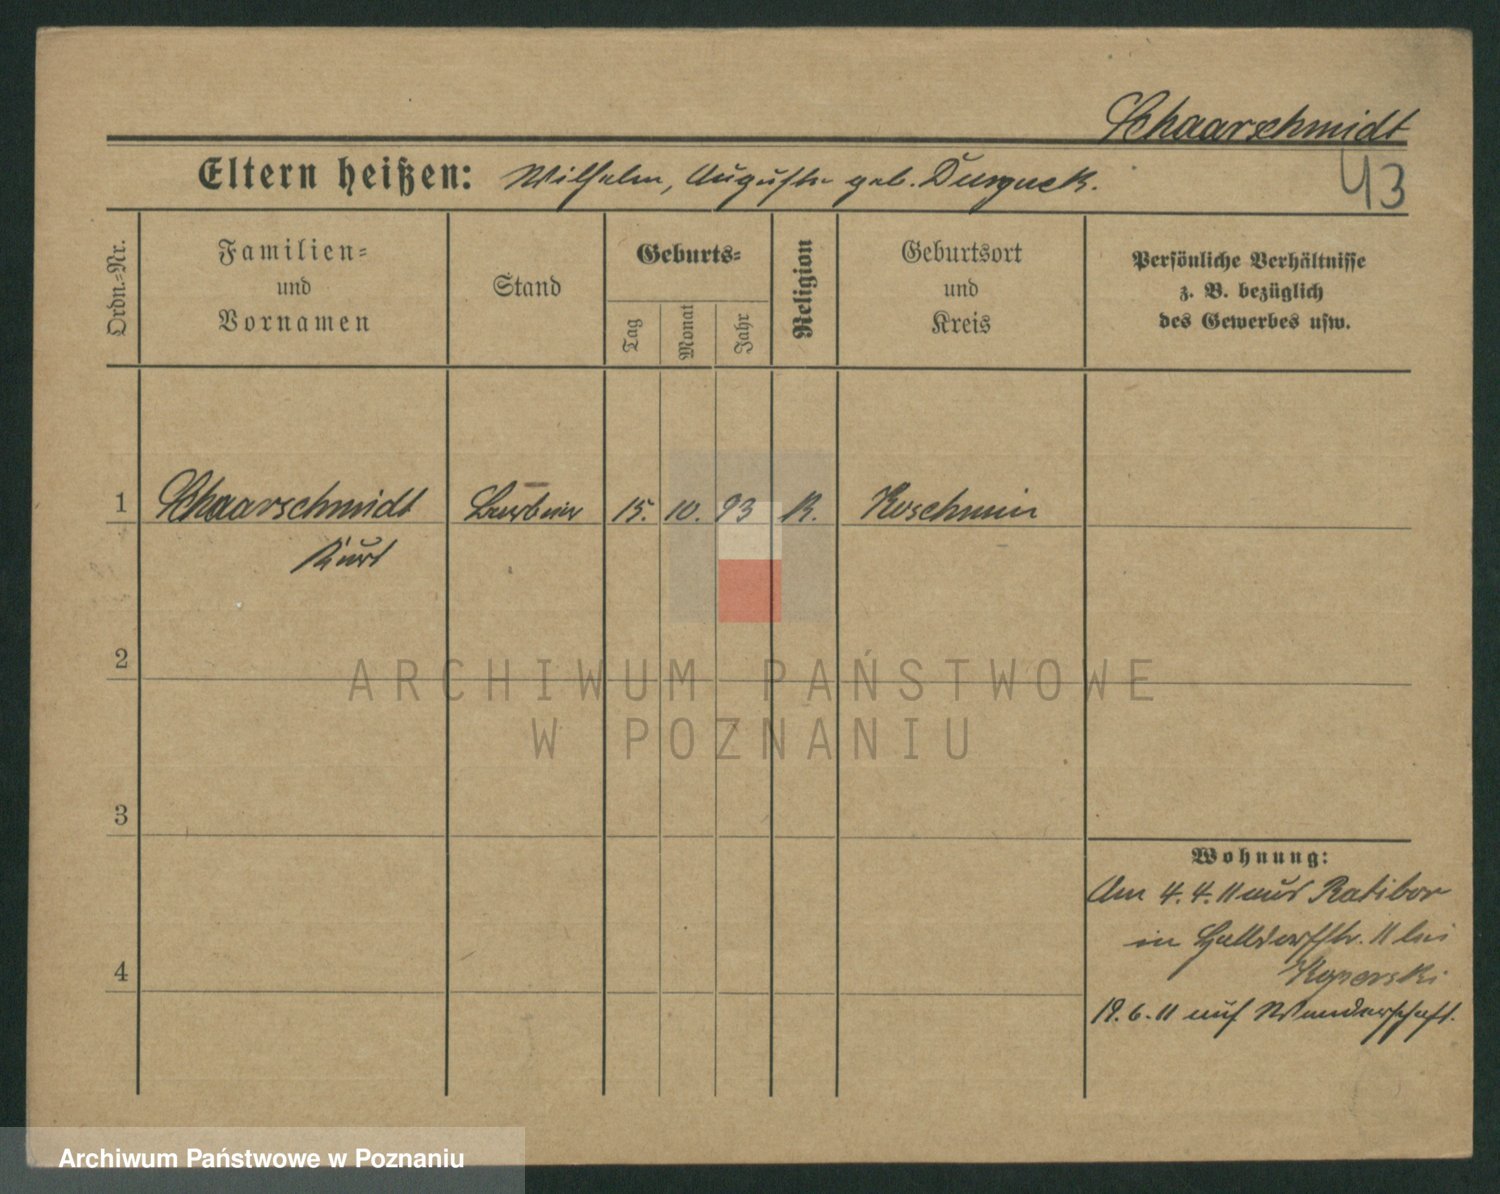 Schaarschmidt
43
Eltern heißen: Wilhelm, Auguste geb.
Ordn.-Nr.
Familien-
und
Vornamen
Stand
Geburts-
Tag
Monat
Jahr
Religion
Geburtsort
und
Kreis
Persönliche Verhältnisse
z. B. bezüglich
des Gewerbes usw.
1 Schaarschmidt Barbier 15. 10. 93 K. Koschmin
Kurt
2
3
4
Wohnung:
Am 4. 4. 11 aus Ratibor
in Halldorfstr. 11 bei
Koperski
19. 6. 11 auf Wanderschaft.
ARCHIWUM PAŃSTWOWE
W POZNANIU
Archiwum Państwowe w Poznaniu